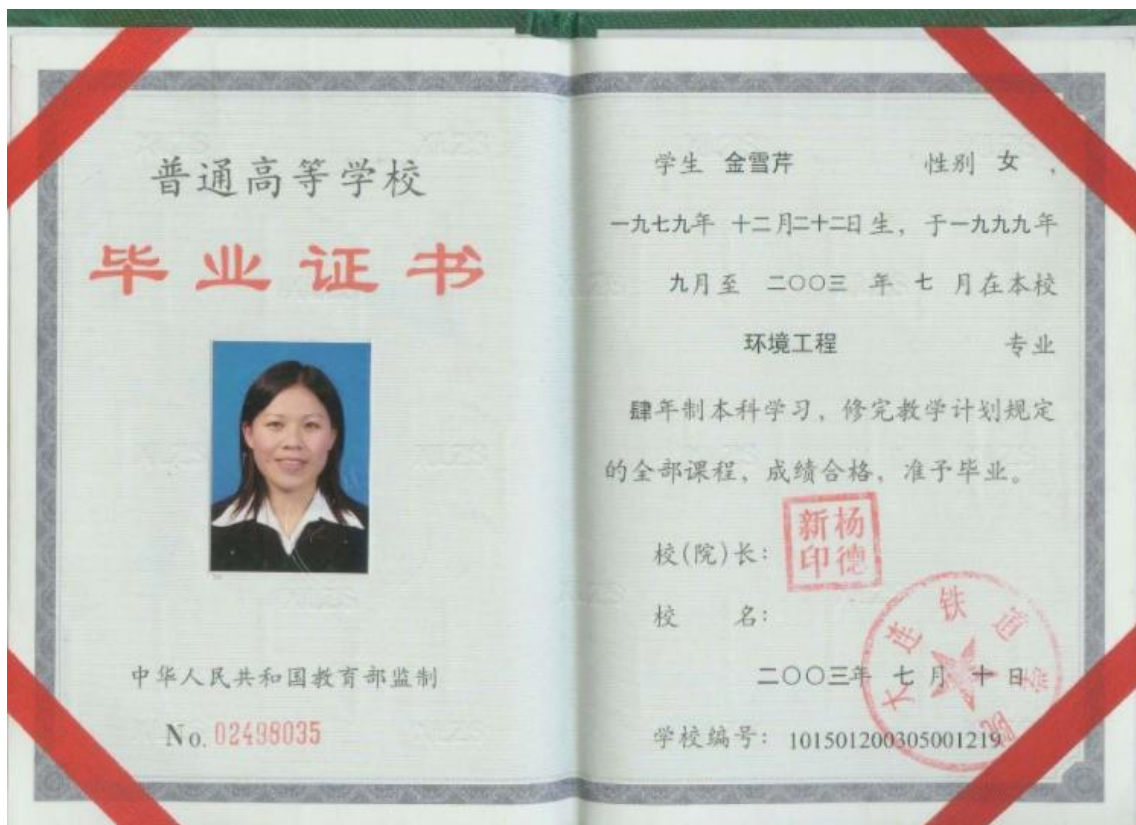 普通高等学校
毕业证书
中华人民共和国教育部监制
No. 02498035
学生 金雪芹 性别 女 ,
一九七九年 十二月二十二日生, 于一九九九年
九月至 二〇〇三 年 七 月在本校
环境工程 专业
肆年制本科学习, 修完教学计划规定
的全部课程, 成绩合格, 准予毕业。
校(院)长:
杨德新印
校 名:
大连铁道学院
二〇〇三年 七 月 十 日
学校编号: 101501200305001219